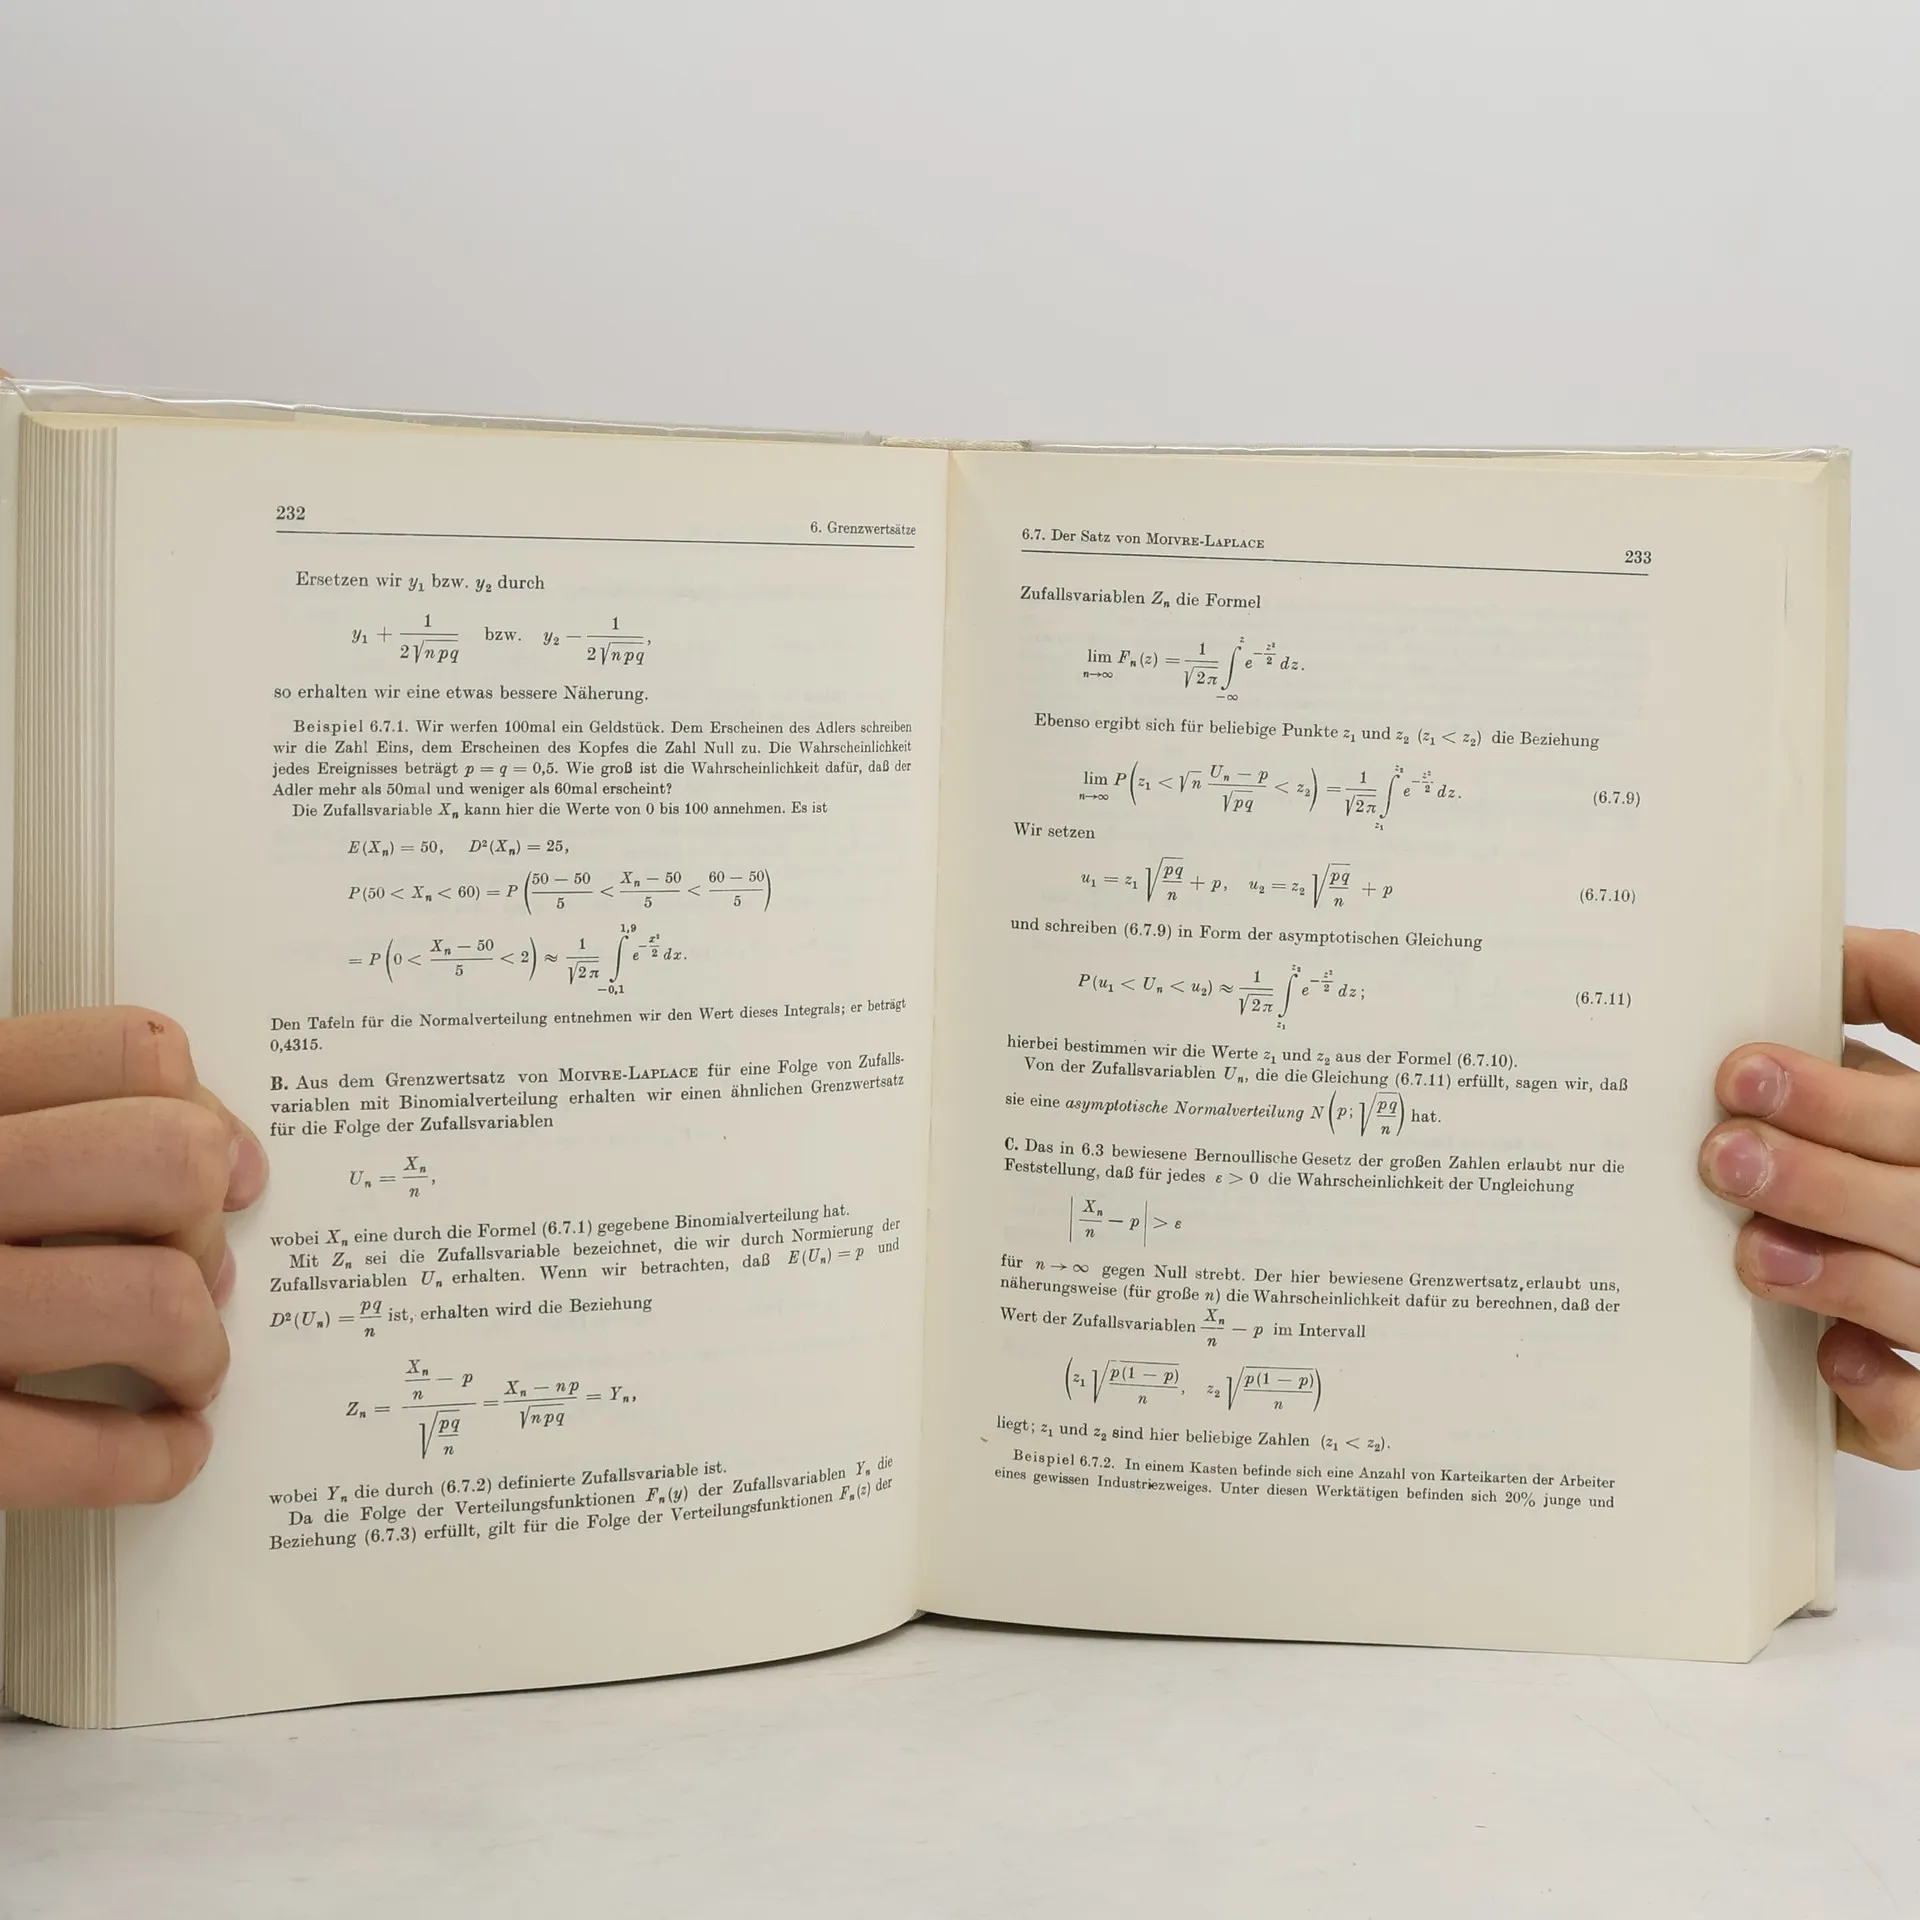 232
6. Grenzwertsätze
Ersetzen wir y₁ bzw. y₂ durch
y₁ + 1/(2√npq) bzw. y₂ − 1/(2√npq),
so erhalten wir eine etwas bessere Näherung.
Beispiel 6.7.1. Wir werfen 100mal ein Geldstück. Dem Erscheinen des Adlers schreiben
wir die Zahl Eins, dem Erscheinen des Kopfes die Zahl Null zu. Die Wahrscheinlichkeit
jedes Ereignisses beträgt p = q = 0,5. Wie groß ist die Wahrscheinlichkeit dafür, daß der
Adler mehr als 50mal und weniger als 60mal erscheint?
Die Zufallsvariable Xₙ kann hier die Werte von 0 bis 100 annehmen. Es ist
E(Xₙ) = 50, D²(Xₙ) = 25,
P(50 < Xₙ < 60) = P((50 − 50)/5 < (Xₙ − 50)/5 < (60 − 50)/5)
= P(0 < (Xₙ − 50)/5 < 2) ≈ 1/√2π ∫_{−0,1}^{1,9} e^{−x²/2} dx.
Den Tafeln für die Normalverteilung entnehmen wir den Wert dieses Integrals; er beträgt
0,4315.
B. Aus dem Grenzwertsatz von MOIVRE-LAPLACE für eine Folge von Zufalls-
variablen mit Binomialverteilung erhalten wir einen ähnlichen Grenzwertsatz
für die Folge der Zufallsvariablen
Uₙ = Xₙ/n,
wobei Xₙ eine durch die Formel (6.7.1) gegebene Binomialverteilung hat.
Mit Zₙ sei die Zufallsvariable bezeichnet, die wir durch Normierung der
Zufallsvariablen Uₙ erhalten. Wenn wir betrachten, daß E(Uₙ) = p und
D²(Uₙ) = pq/n ist, erhalten wird die Beziehung
Zₙ = (Xₙ/n − p)/√(pq/n) = (Xₙ − np)/√npq = Yₙ,
wobei Yₙ die durch (6.7.2) definierte Zufallsvariable ist.
Da die Folge der Verteilungsfunktionen Fₙ(y) der Zufallsvariablen Yₙ die
Beziehung (6.7.3) erfüllt, gilt für die Folge der Verteilungsfunktionen Fₙ(z) der
6.7. Der Satz von MOIVRE-LAPLACE
233
Zufallsvariablen Zₙ die Formel
lim_{n→∞} Fₙ(z) = 1/√2π ∫_{−∞}^{z} e^{−z²/2} dz.
Ebenso ergibt sich für beliebige Punkte z₁ und z₂ (z₁ < z₂) die Beziehung
lim_{n→∞} P(z₁ < √n (Uₙ − p)/√pq < z₂) = 1/√2π ∫_{z₁}^{z₂} e^{−z²/2} dz. (6.7.9)
Wir setzen
u₁ = z₁ √(pq/n) + p, u₂ = z₂ √(pq/n) + p (6.7.10)
und schreiben (6.7.9) in Form der asymptotischen Gleichung
P(u₁ < Uₙ < u₂) ≈ 1/√2π ∫_{z₁}^{z₂} e^{−z²/2} dz; (6.7.11)
hierbei bestimmen wir die Werte z₁ und z₂ aus der Formel (6.7.10).
Von der Zufallsvariablen Uₙ, die die Gleichung (6.7.11) erfüllt, sagen wir, daß
sie eine asymptotische Normalverteilung N(p; √(pq/n)) hat.
C. Das in 6.3 bewiesene Bernoullische Gesetz der großen Zahlen erlaubt nur die
Feststellung, daß für jedes ε > 0 die Wahrscheinlichkeit der Ungleichung
|Xₙ/n − p| > ε
für n → ∞ gegen Null strebt. Der hier bewiesene Grenzwertsatz erlaubt uns,
näherungsweise (für große n) die Wahrscheinlichkeit dafür zu berechnen, daß der
Wert der Zufallsvariablen Xₙ/n − p im Intervall
(z₁ √(p(1 − p)/n), z₂ √(p(1 − p)/n))
liegt; z₁ und z₂ sind hier beliebige Zahlen (z₁ < z₂).
Beispiel 6.7.2. In einem Kasten befinde sich eine Anzahl von Karteikarten der Arbeiter
eines gewissen Industriezweiges. Unter diesen Werktätigen befinden sich 20% junge und